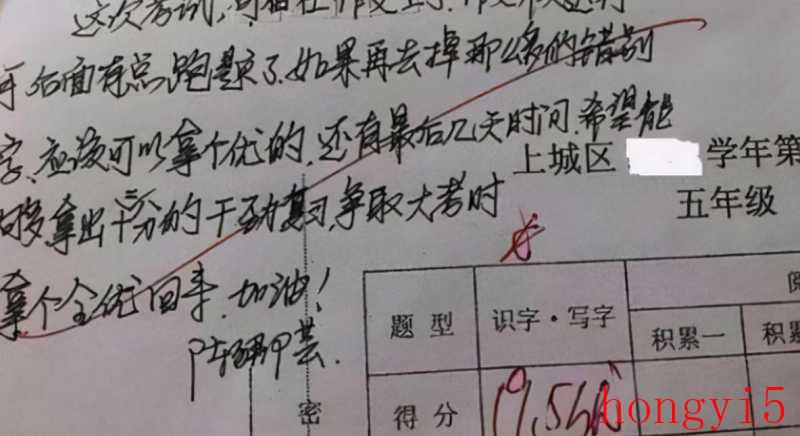 这次考试,可
后面有点跑题了.如果再去掉那么多的错别
字,应该可以拿个优的.还有最后几天时间.希望能
够拿出十二分的干劲复习,争取大考时
拿个全优回来.加油!
上城区 学年第
五年级
题 型 识字·写字
积累一 积累
得 分 19.5
密
hongyi5